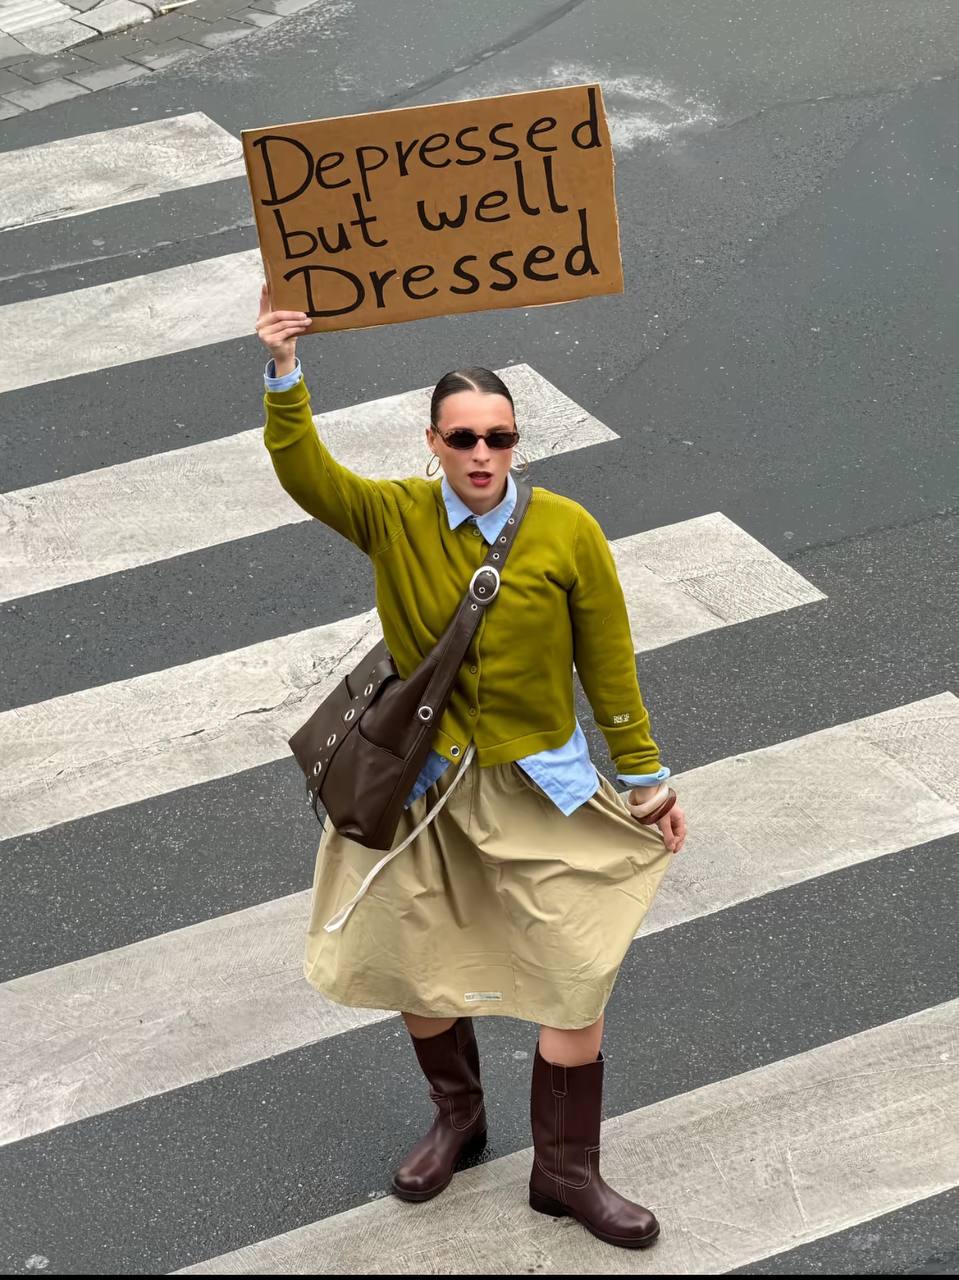 Depressed
but well
Dressed